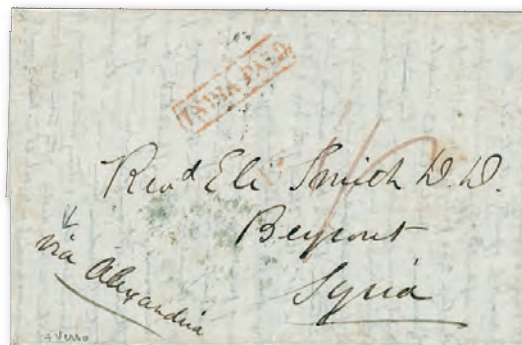 INDIA PAID
Revd Eli Smith D.D.
Beyrout
Syria
via Alexandria
+ Verso